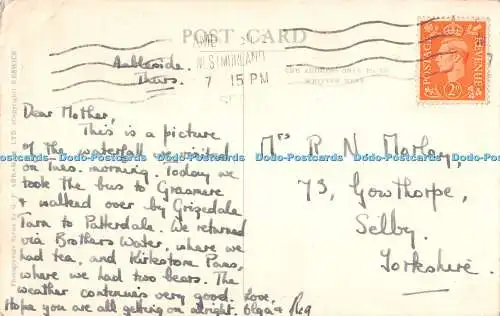 POST CARD
WESTMORLAND
7 15 PM
THE ADDRESS ONLY TO BE
WRITTEN HERE
POSTAGE REVENUE
2D
Ambleside.
Thurs.
Dear Mother,
This is a picture
of the waterfall we visited
on Tues. morning. Today we
took the bus to Grasmere
& walked over by Grizedale
Tarn to Patterdale. We returned
via Brothers Water, where we
had tea, and Kirkstone Pass,
where we had two bears. The
weather continues very good. Love,
Hope you are all getting on alright. Olga & Reg
Mrs R N Morley,
73, Gowthorpe,
Selby.
Yorkshire.
Postcards Dodo-Postcards Dodo-Postcards Dodo-Postcards Dodo-Postcards Dodo-Postcards
www.dodo-postcards.com